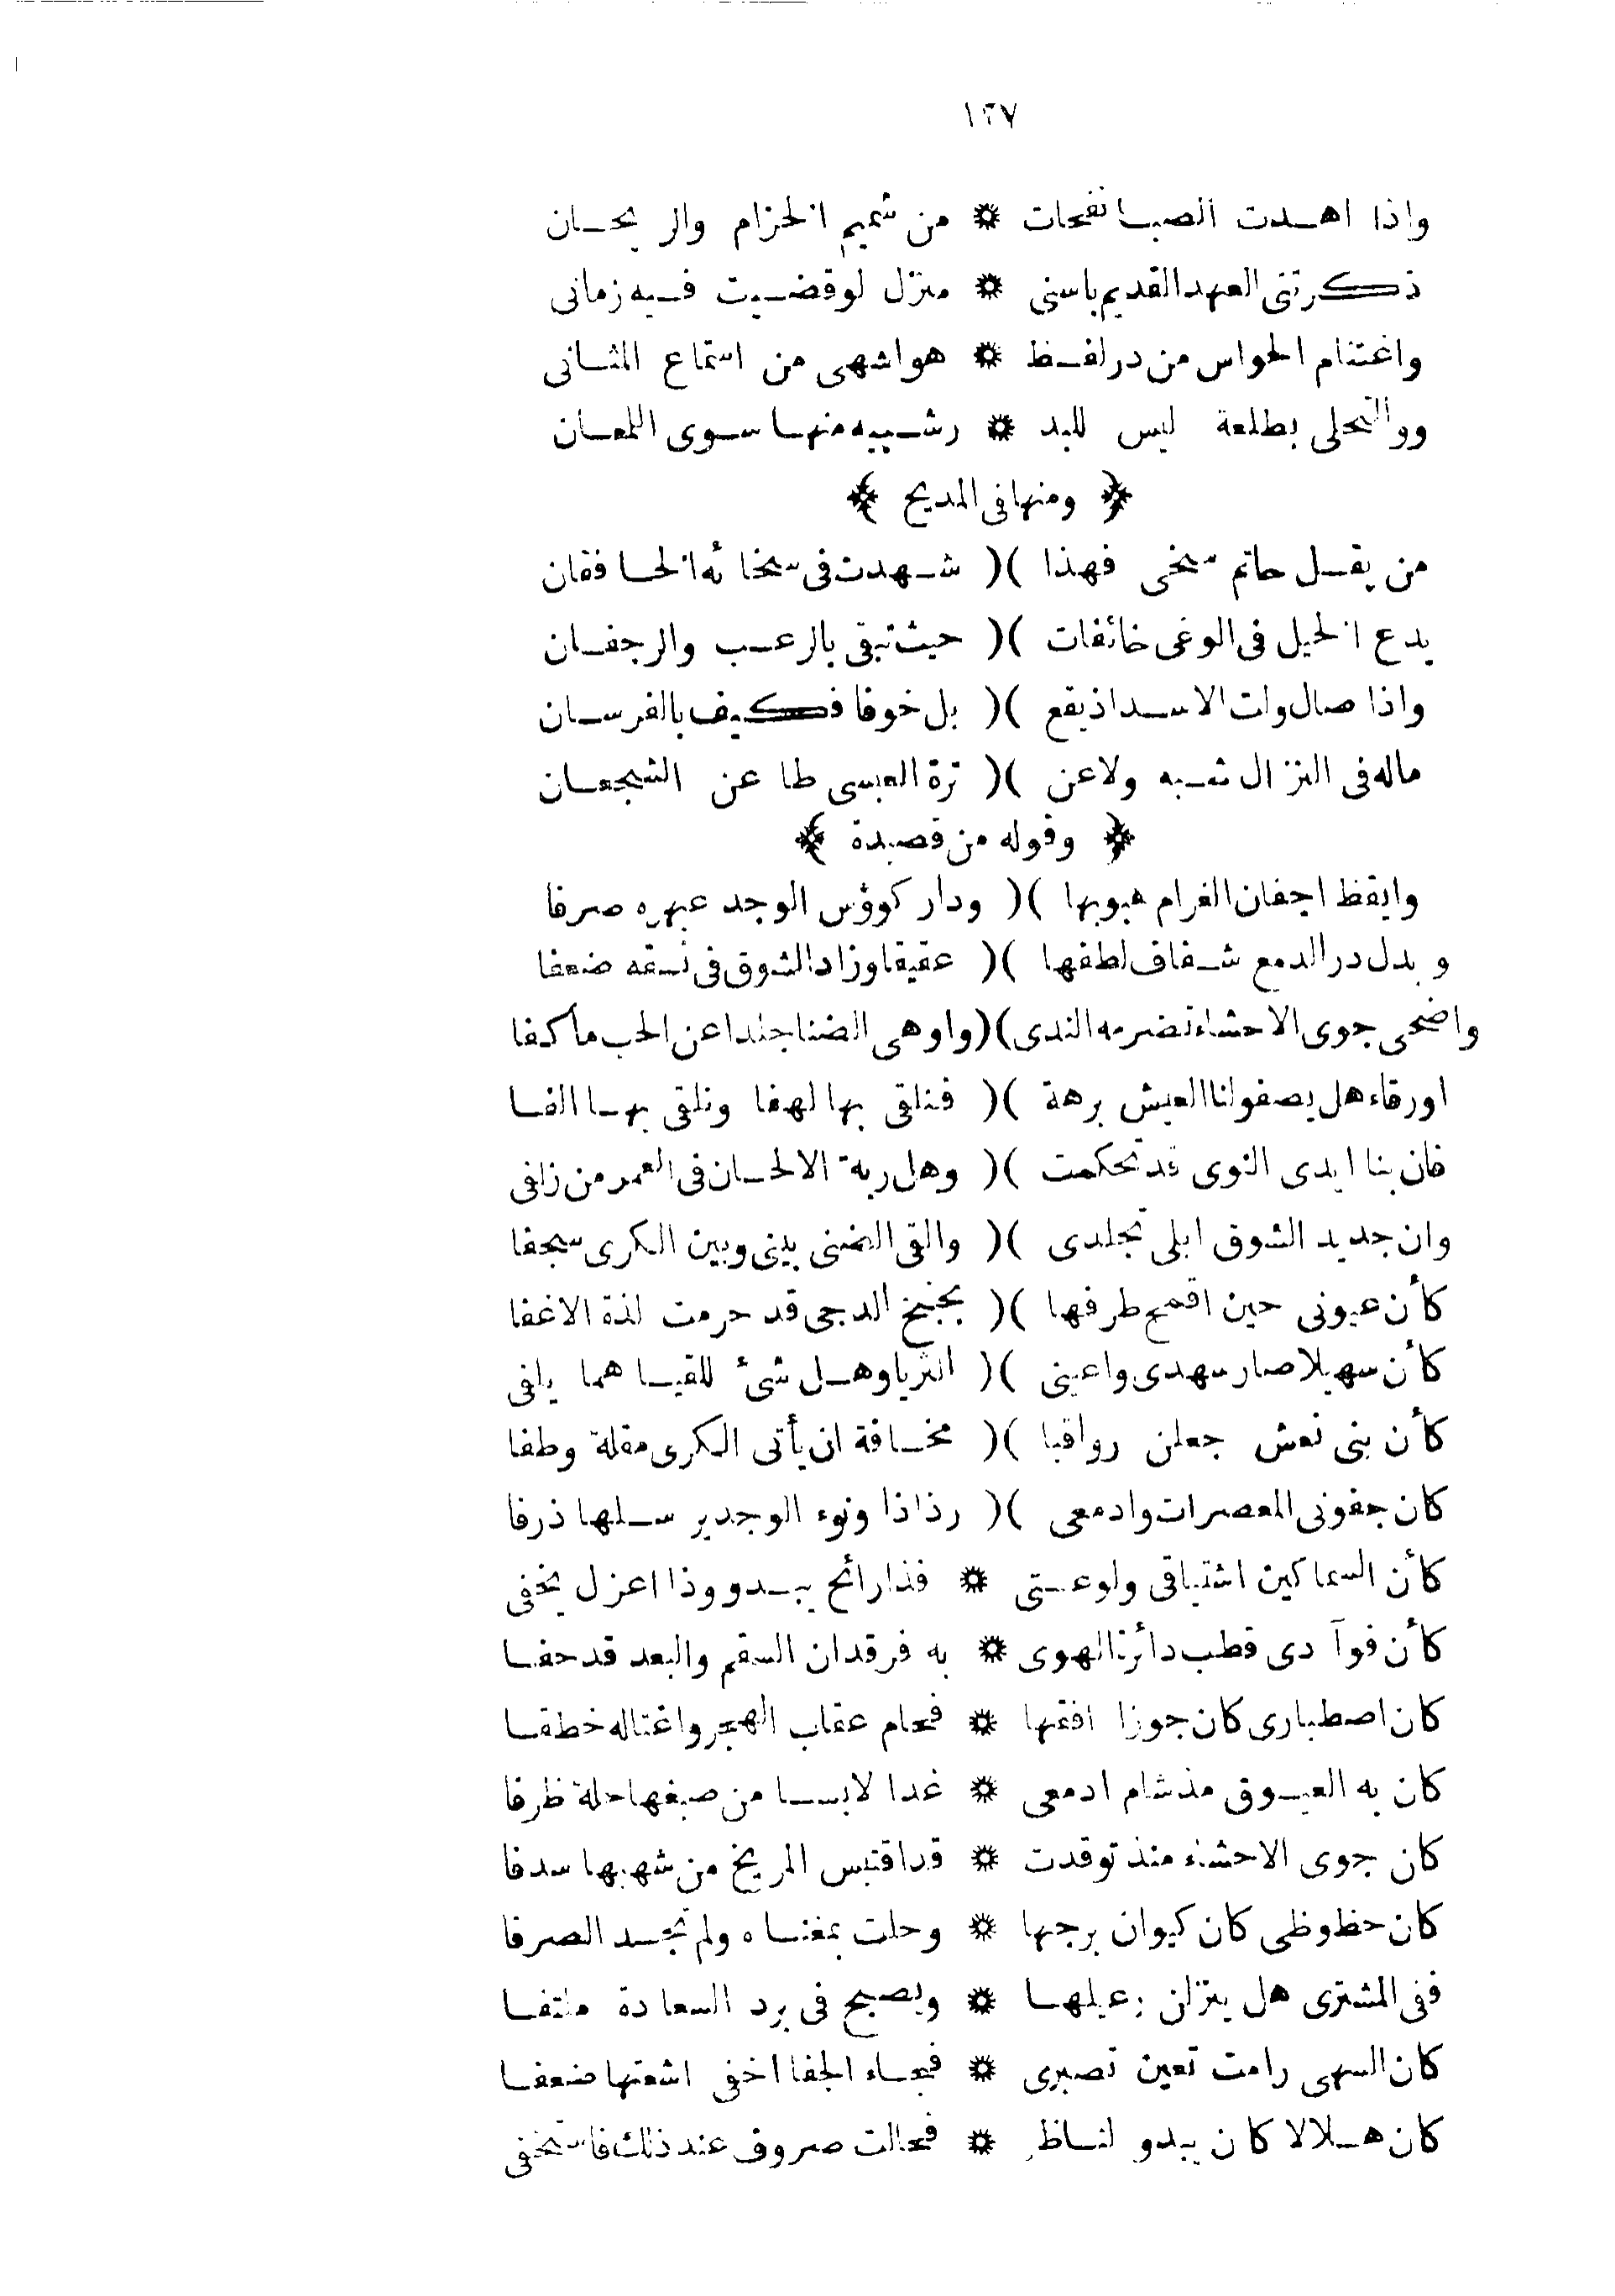 ١٢٧
واذا اهـدت الصبـا نفحات * من شميم الخزام والريحـان
ذكرتنى العهد القديم باسنى * منزل لو قضـيت فـيه زمانى
واغتنام الحواس من در لفـظ * هو اشهى من استماع المثـانى
ووالتحلى بطلعة ليس للبد * ر شـبيه منهـا سـوى اللمعـان
﴿ ومنها فى المديح ﴾
من يقـل حاتم سخى فهذا )( شـهدت فى سخائه الخـافقان
يدع الخيل فى الوغى خائفات )( حيث تبقى بالرعـب والرجفـان
واذا صال وات الاسـد اذ يقع )( بل خوفا فكيف بالفرسـان
ماله فى النزال شـبه ولا عن )( ترة العبسى طاعن الشجعـان
﴿ وقوله من قصيدة ﴾
وايقظ اجفان الغرام هبوبها )( ودار كوؤس الوجد عبهره صرفا
وبدل در الدمع شـفاف لطفها )( عقيقا وزاد الشوق فى نسقه ضعفا
واضحى جوى الاحشاء تضرمه الندى )( واوهى الضنا جلدا عن الحب ما كفا
اورقاء هل يصفو لنا العيش برهة )( فنلقى بها لهفا ونلقى بهـا الفـا
فان بنا ايدى النوى قد تحكمت )( وهل ربة الالحـان فى العمر من زافى
وان جديد الشوق ابلى تجلدى )( والقى الضنى بينى وبين الكرى سجفا
كأن عيونى حين اقمح طرفها )( بجنح الدجى قد حرمت لذة الاغفا
كأن سهيلا صار سهدى واعينى )( الثريا وهـل شئ للقيـاهما يافى
كأن بنى نعش جعلن رواقبا )( مخـافة ان يأتى الكرى مقلة وطفا
كان جفونى المعصرات وادمعى )( رذاذا ونوء الوجد يرسـلها ذرفا
كأن السماكين اشتياقى ولوعـتى * فذا رائح يبـدو وذا اعزل يخفى
كأن فوآدى قطب دائرة الهوى * به فرقدان السقم والبعد قد حفـا
كان اصطبارى كان جوزا افقها * فحام عقاب الهجر واغتاله خطفـا
كان به العيـوق مذ شام ادمعى * غدا لابسـا من صبغها حلة ظرفا
كان جوى الاحشاء منذ توقدت * قد اقتبس المريخ من شهبها سدفا
كان حظوظى كان كيوان برجها * وحلت بمغنـاه ولم تجـد الصرفا
ففى المشترى هل ينزلن عيلهـا * ويصبح فى برد السعادة ملتفـا
كان السهى رامت تعين تصبرى * فجـاء الجفا اخفى اشعتها ضعفـا
كان هـلالا كان يبدو لنـاظر * فحالت صروف عند ذلك فاستخفى